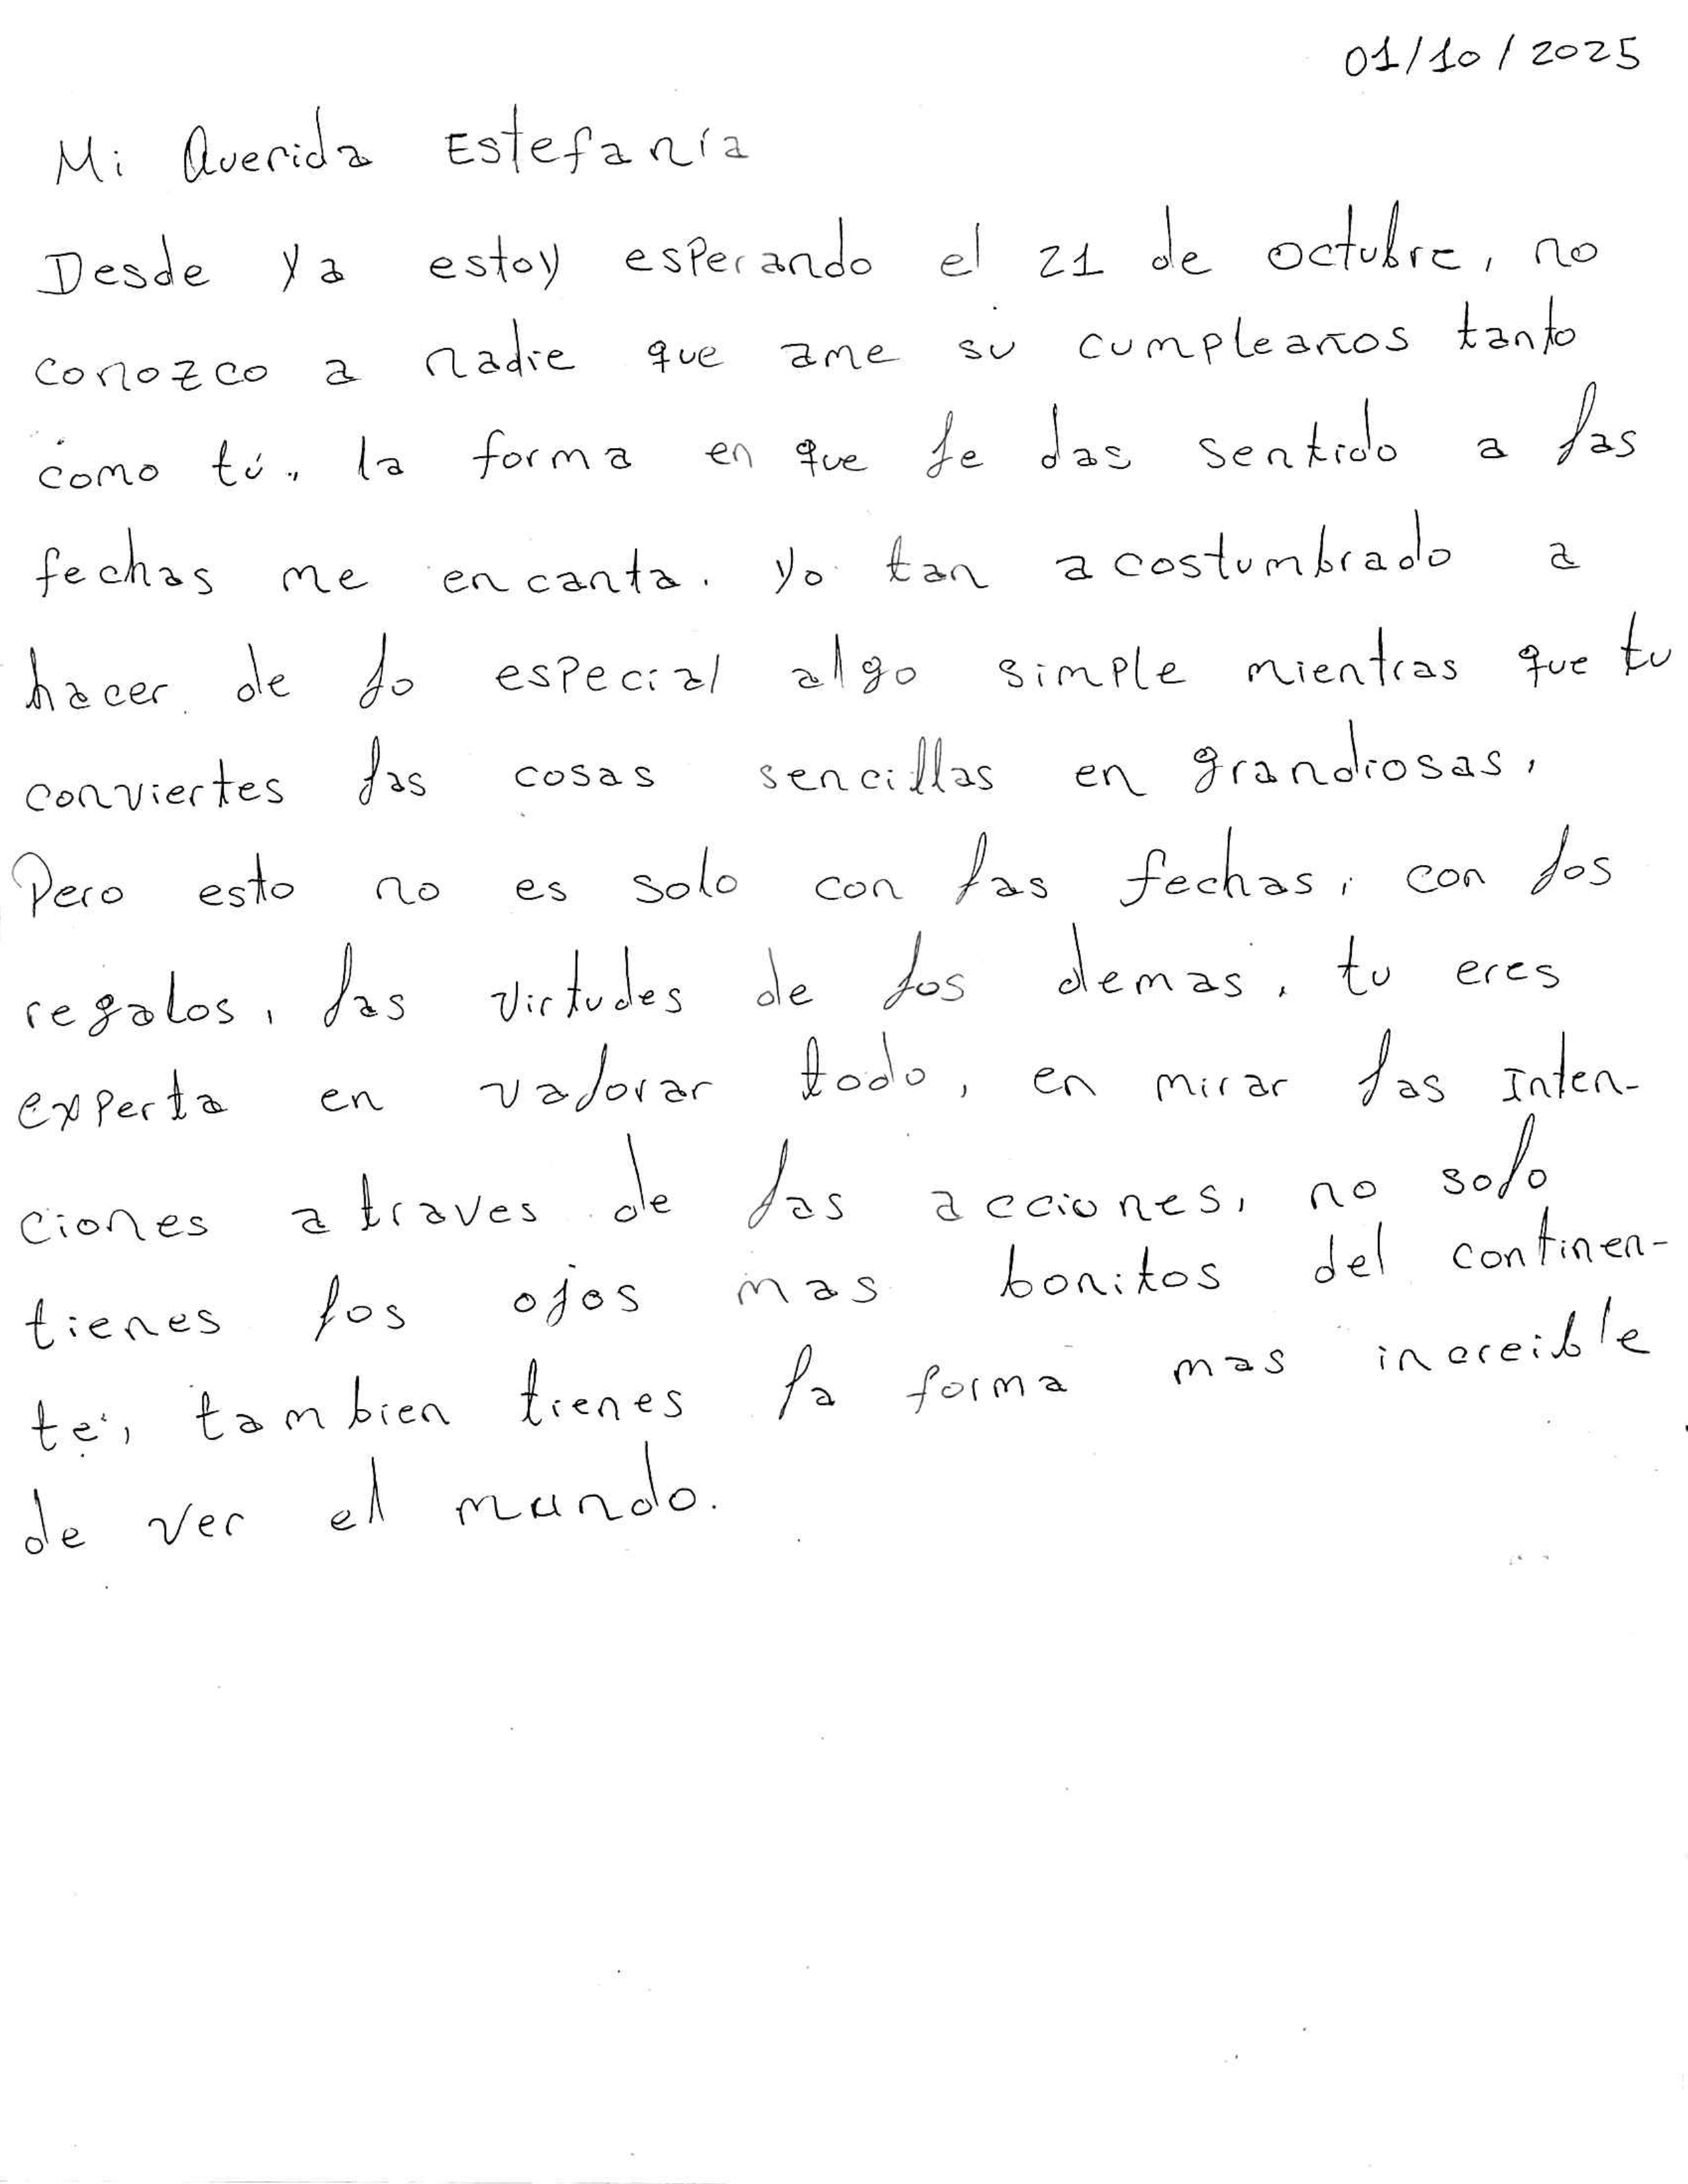 01/10/2025
Mi Querida Estefanía
Desde ya estoy esperando el 21 de octubre, no
conozco a nadie que ame su cumpleaños tanto
como tú, la forma en que le das sentido a las
fechas me encanta. Yo tan acostumbrado a
hacer de lo especial algo simple mientras que tu
conviertes las cosas sencillas en grandiosas,
Pero esto no es solo con las fechas, con los
regalos, las virtudes de los demas, tu eres
experta en valorar todo, en mirar las Inten-
ciones a traves de las acciones, no solo
tienes los ojos mas bonitos del continen-
te, tambien tienes la forma mas increible
de ver el mundo.